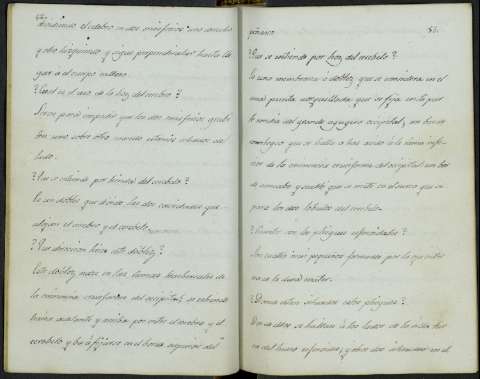 dividiendo el celebro en dos emisferios uno derecho
y otro hizquierdo y sigue perpendicular hasta lle
gar a el cuerpo calloso.
? Cual es el uso de la hoz del cerebro?
Sirve para impedir que los dos emisferios graviten
uno sobre otro cuando estamos echados de
lado.
? Que se entiende por tienda del cerebelo?
Es un doblez que divide las dos cavidades que
alojan el cerebro y el cerebelo.
? Que direccion tiene este doblez?
Este doblez nace en las laminas trasbersales de
la eminencia cruciforme del occipital, se estiende
hacia adelante y arriba por entre el cerebro y el
cerebelo y ba á fijarse en el borde superior del
peñasco. 53.
? Que se entiende por hoz del cerebelo?
Es una membrana ó doblez que se considera en el
una punta que se fija en la par
te media del grande agugero occipital, un borde
combexo que se halla acia atrás á la lamina infe-
rior de la eminencia cruciforme del occipital un bor
de concabo y suelto que se mete en el surco que se
para los dos lobulos del cerebelo.
? Cuantos son los pliegues esfenoidales?
Son cuatro mui pequeños formados por la cara inter
na de la dura mater.
? Donde estan situados estos pliegues?
Dos de ellos se hallan á los lados de la silla tur
ca del hueso esfenoides, y otros dos interiores en el